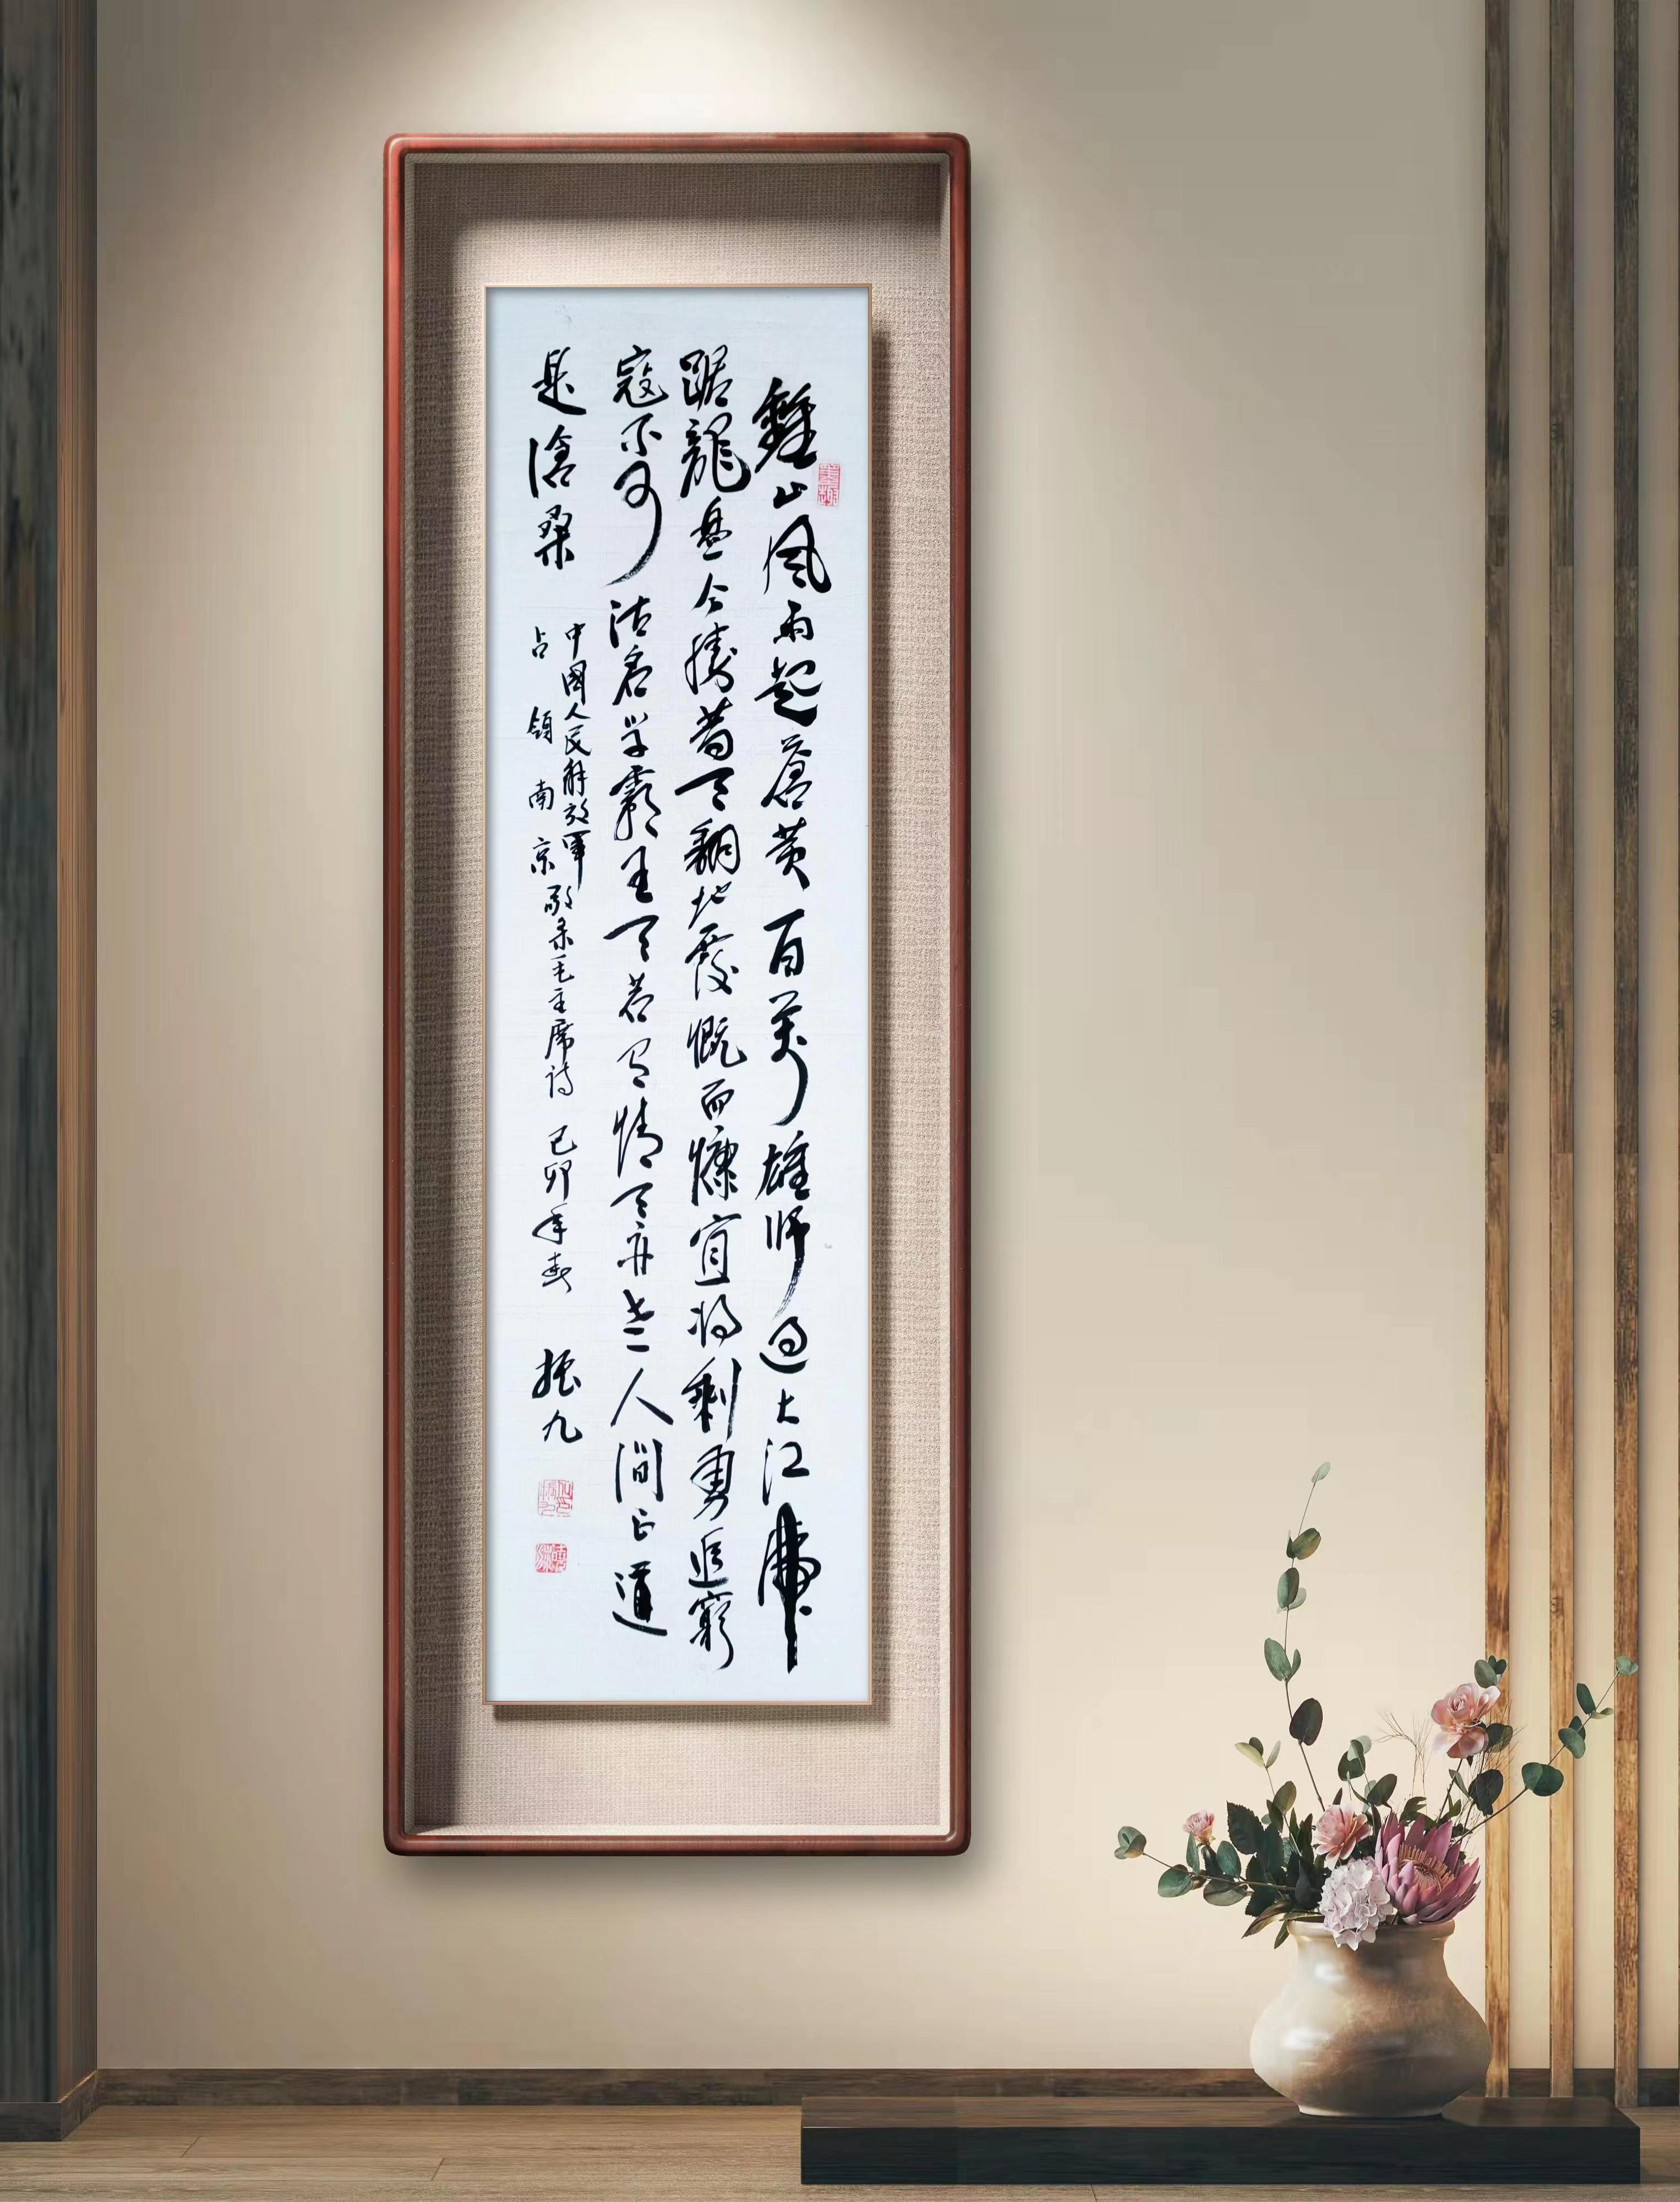 鍾山風雨起蒼黄百萬雄師過大江虎
踞龍盤今勝昔天翻地覆慨而慷宜将剩勇追窮
寇不可沽名学霸王天若有情天亦老人間正道
是滄桑
中國人民解放軍
占領南京
敬录毛主席诗 己卯年春 振九